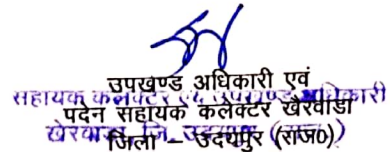 उपखण्ड अधिकारी एवं
सहायक कलेक्टर एवं उपखण्ड अधिकारी
पदेन सहायक कलेक्टर खैरवाडा
खेरवाड़ा, जि. उदयपुर (राज.)
जिला – उदयपुर (राज0)